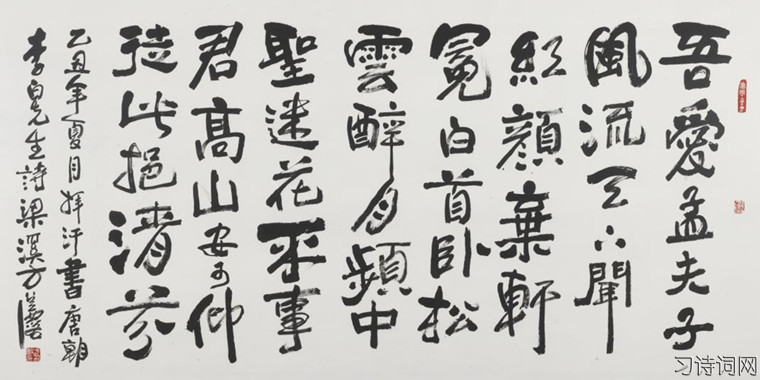 吾愛孟夫子
風流天下聞
紅顔棄軒
冕白首卧松
雲醉月頻中
聖迷花不事
君高山安可仰
徒此挹清芬
乙丑年夏月拜汗書唐朝
李白先生詩梁溪方
习诗词网